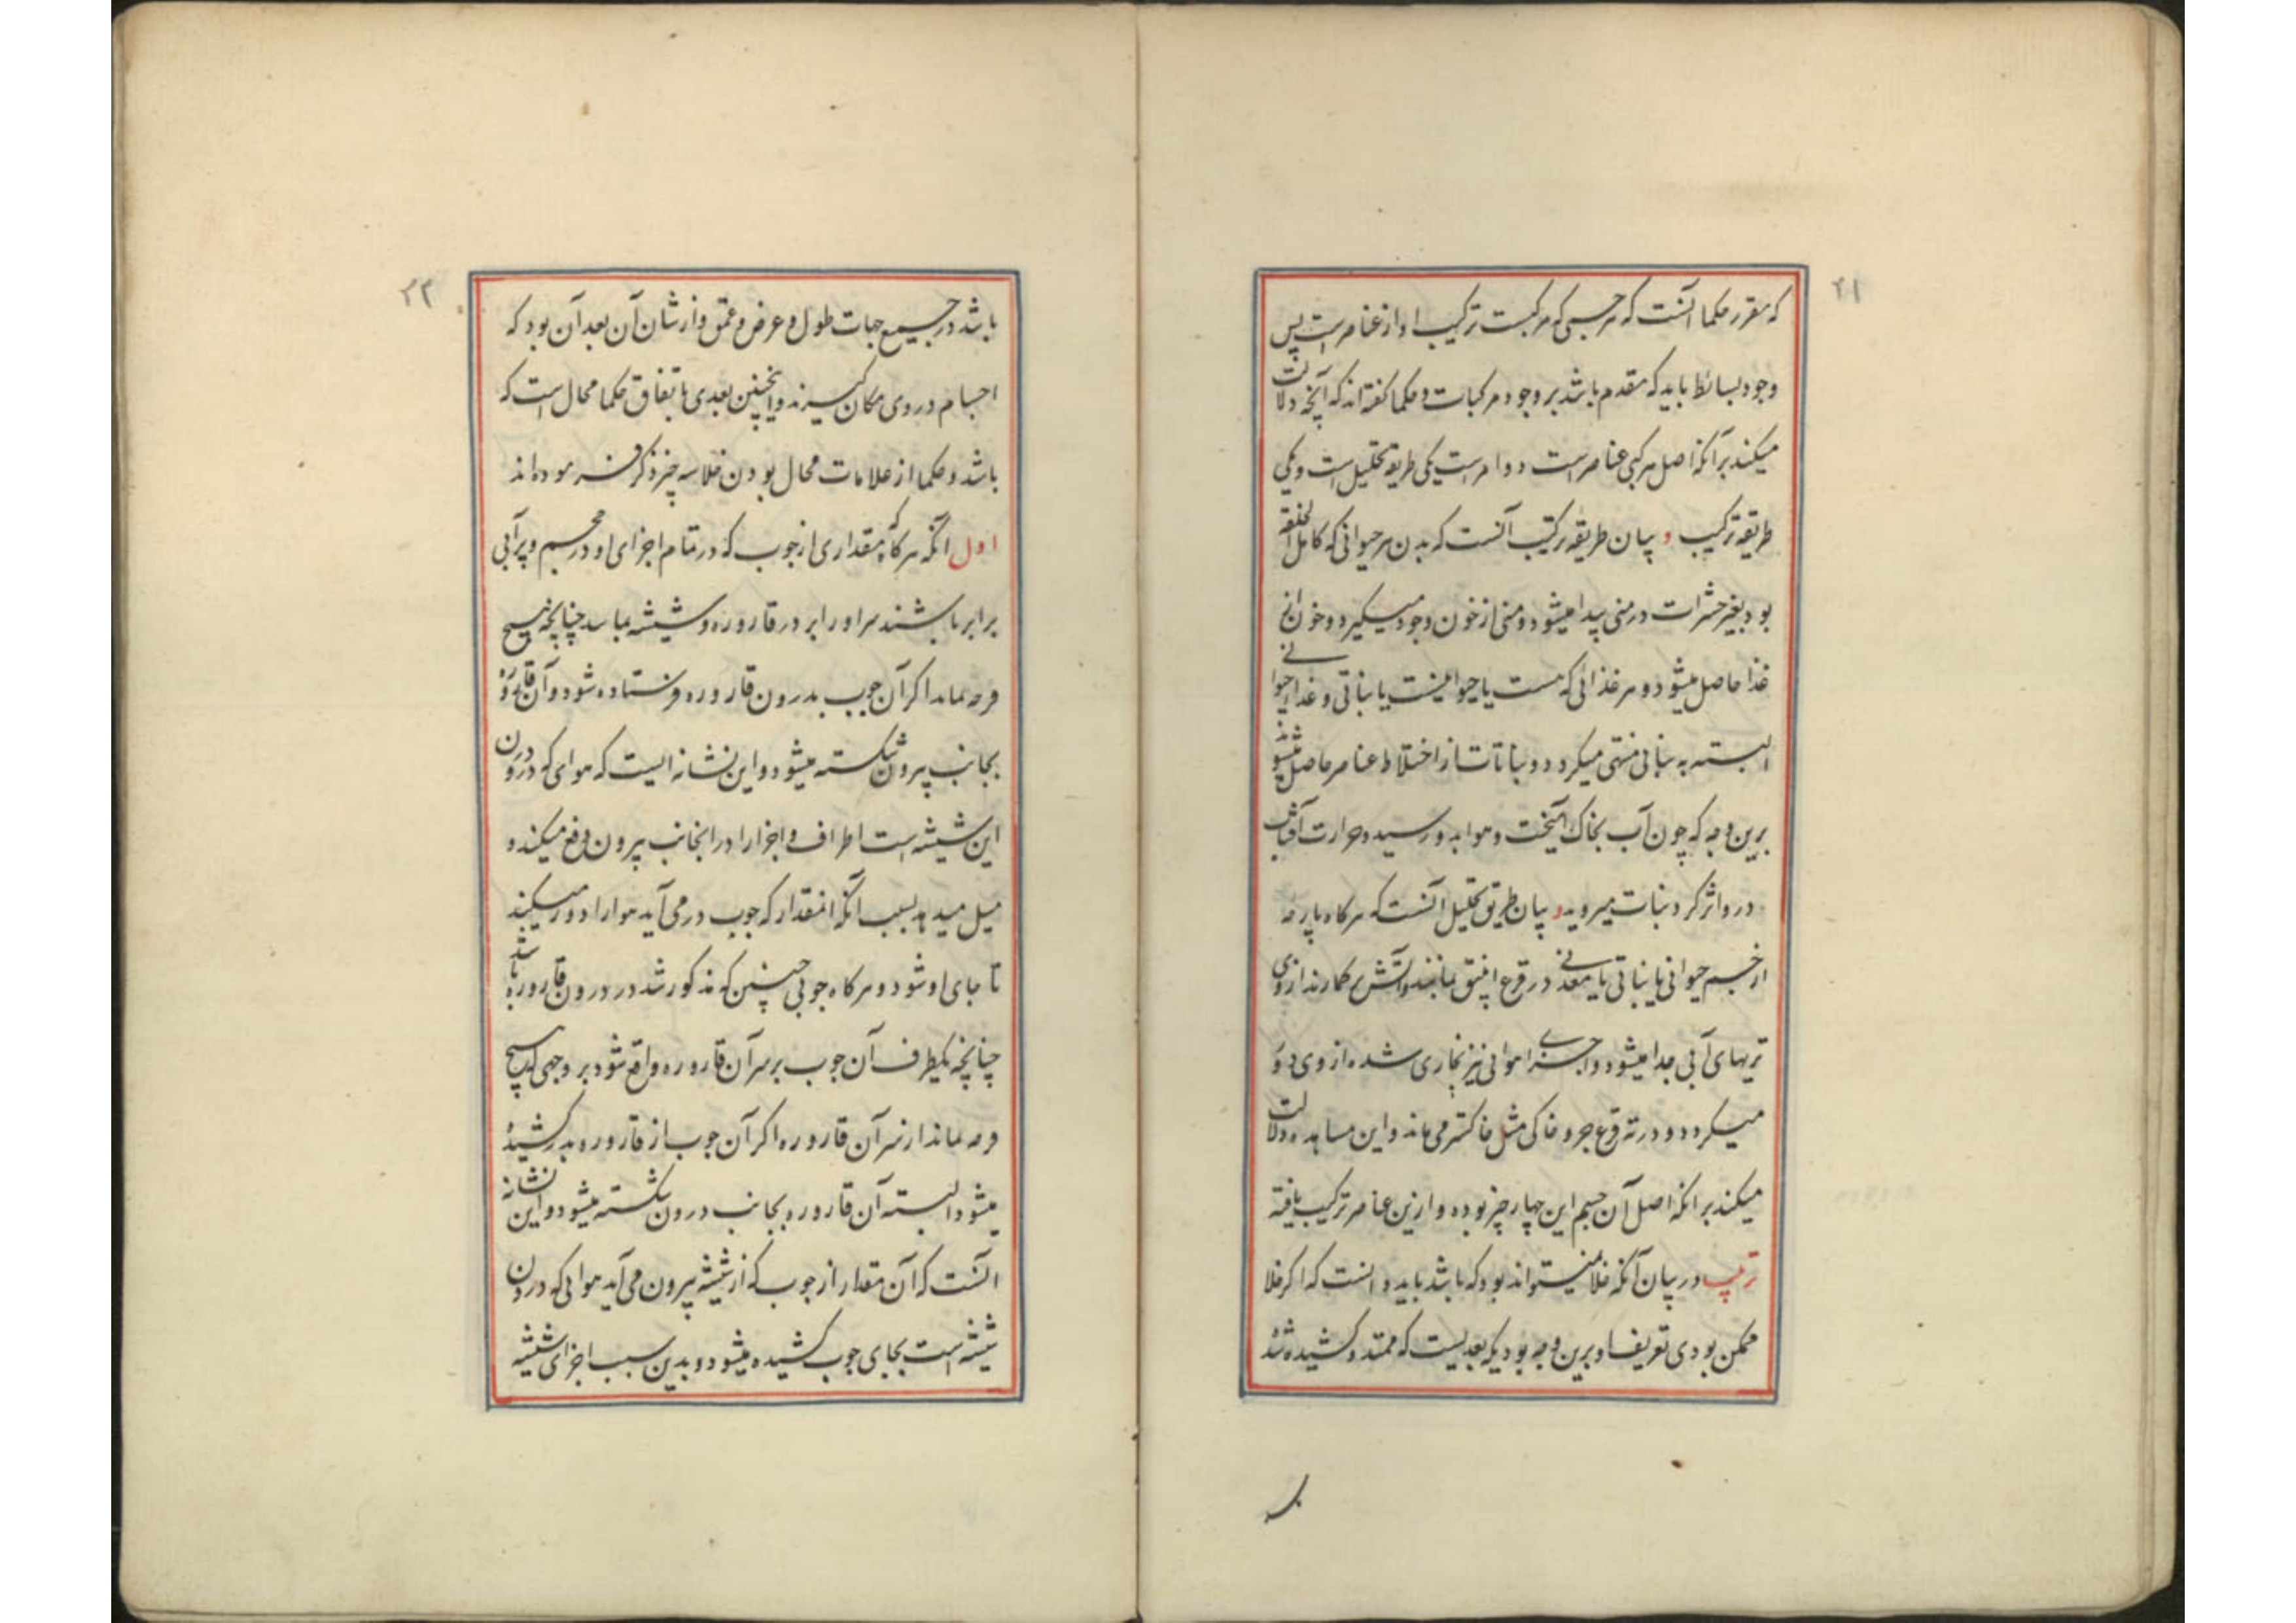 ۲۱
که مقرر حکما آنست که هر جسمی که مرکبست ترکیب او از عناصر است پس
وجود بسائط باید که مقدم باشد بر وجود مرکبات و حکما گفته اند که آنچه دلالت
میکند بر آنکه اصل هر مرکبی عناصر است دو امر است یکی طریقه تحلیل است و یکی
طریقه ترکیب و بیان طریقه ترکیب آنست که بدن هر حیوانی که کامل الخلقه
بود بغیر حشرات در منی پیدا میشود و منی از خون وجود میگیرد و خون از
غذا حاصل میشود و هر غذائی که هست یا حیوانیست یا نباتی و غذای حیوانی
البته به نباتی منتهی میکردد و نباتات از اختلاط عناصر حاصل میشوند
برین وجه که چون آب بخاک آمیخت و هوا بدو رسید و حرارت آفتاب
درو اثر کرد نبات میروید و بیان طریق تحلیل آنست که هر کاه پارچه
از جسم حیوانی یا نباتی یا معدنی در قرع انبیق نهند و آتش کمارند از وی
تریهای آبی جدا میشود و اجزای هوائی نیز بخاری شده از وی دور
میکردد و در ته قرع جزو خاکی مثل خاکستر می ماند و این مشاهده دلالت
میکند بر آنکه اصل آن جسم این چهار چیز بوده و ازین عناصر ترکیب یافته
ترتیب در بیان آنکه خلا نمیتواند بود که باشد باید دانست که اکر خلا
ممکن بودی تعریف او برین وجه بود که بعدیست که ممتد و کشیده شد
۲۲
باشد در جمیع جهات طول و عرض و عمق و از شان آن بعد آن بود که
اجسام در وی مکان گیرند و اینچنین بعدی باتفاق حکما محال است که
باشد و حکما از علامات محال بودن خلا سه چیز ذکر فرموده اند
اول آنکه هر کاه مقداری از چوب که در تمام اجزای او در حجم و پرآبی
برابر باشند سر او را بر در قاروره و شیشه بماند چنانچه هیچ
فرجه نماند اکر آن چوب بدرون قاروره فرستاده شود و آن قاروره
بجانب بیرون شکسته میشود و این نشانه ایست که هوای که در درون
این شیشه است اطراف و اجزا را در آنجانب بیرون دفع میکند و
میل میدهد بسبب آنکه آنمقدار که چوب در می آید هوا را دور میکند
تا جای او شود و هر کاه چوبی چنین که مذکور شد در درون قاروره باشد
چنانچه یکطرف آن چوب بر سر آن قاروره واقع شود بر وجهی که هیچ
فرجه نماند از سر آن قاروره اکر آن چوب از قاروره بدر کشیده
میشود البته آن قاروره بجانب درون شکسته میشود و این نشانه
آنست که آن مقدار از چوب که از شیشه بیرون می آید هوائی که در درون
شیشه است بجای چوب کشیده میشود و بدین سبب اجزای شیشه